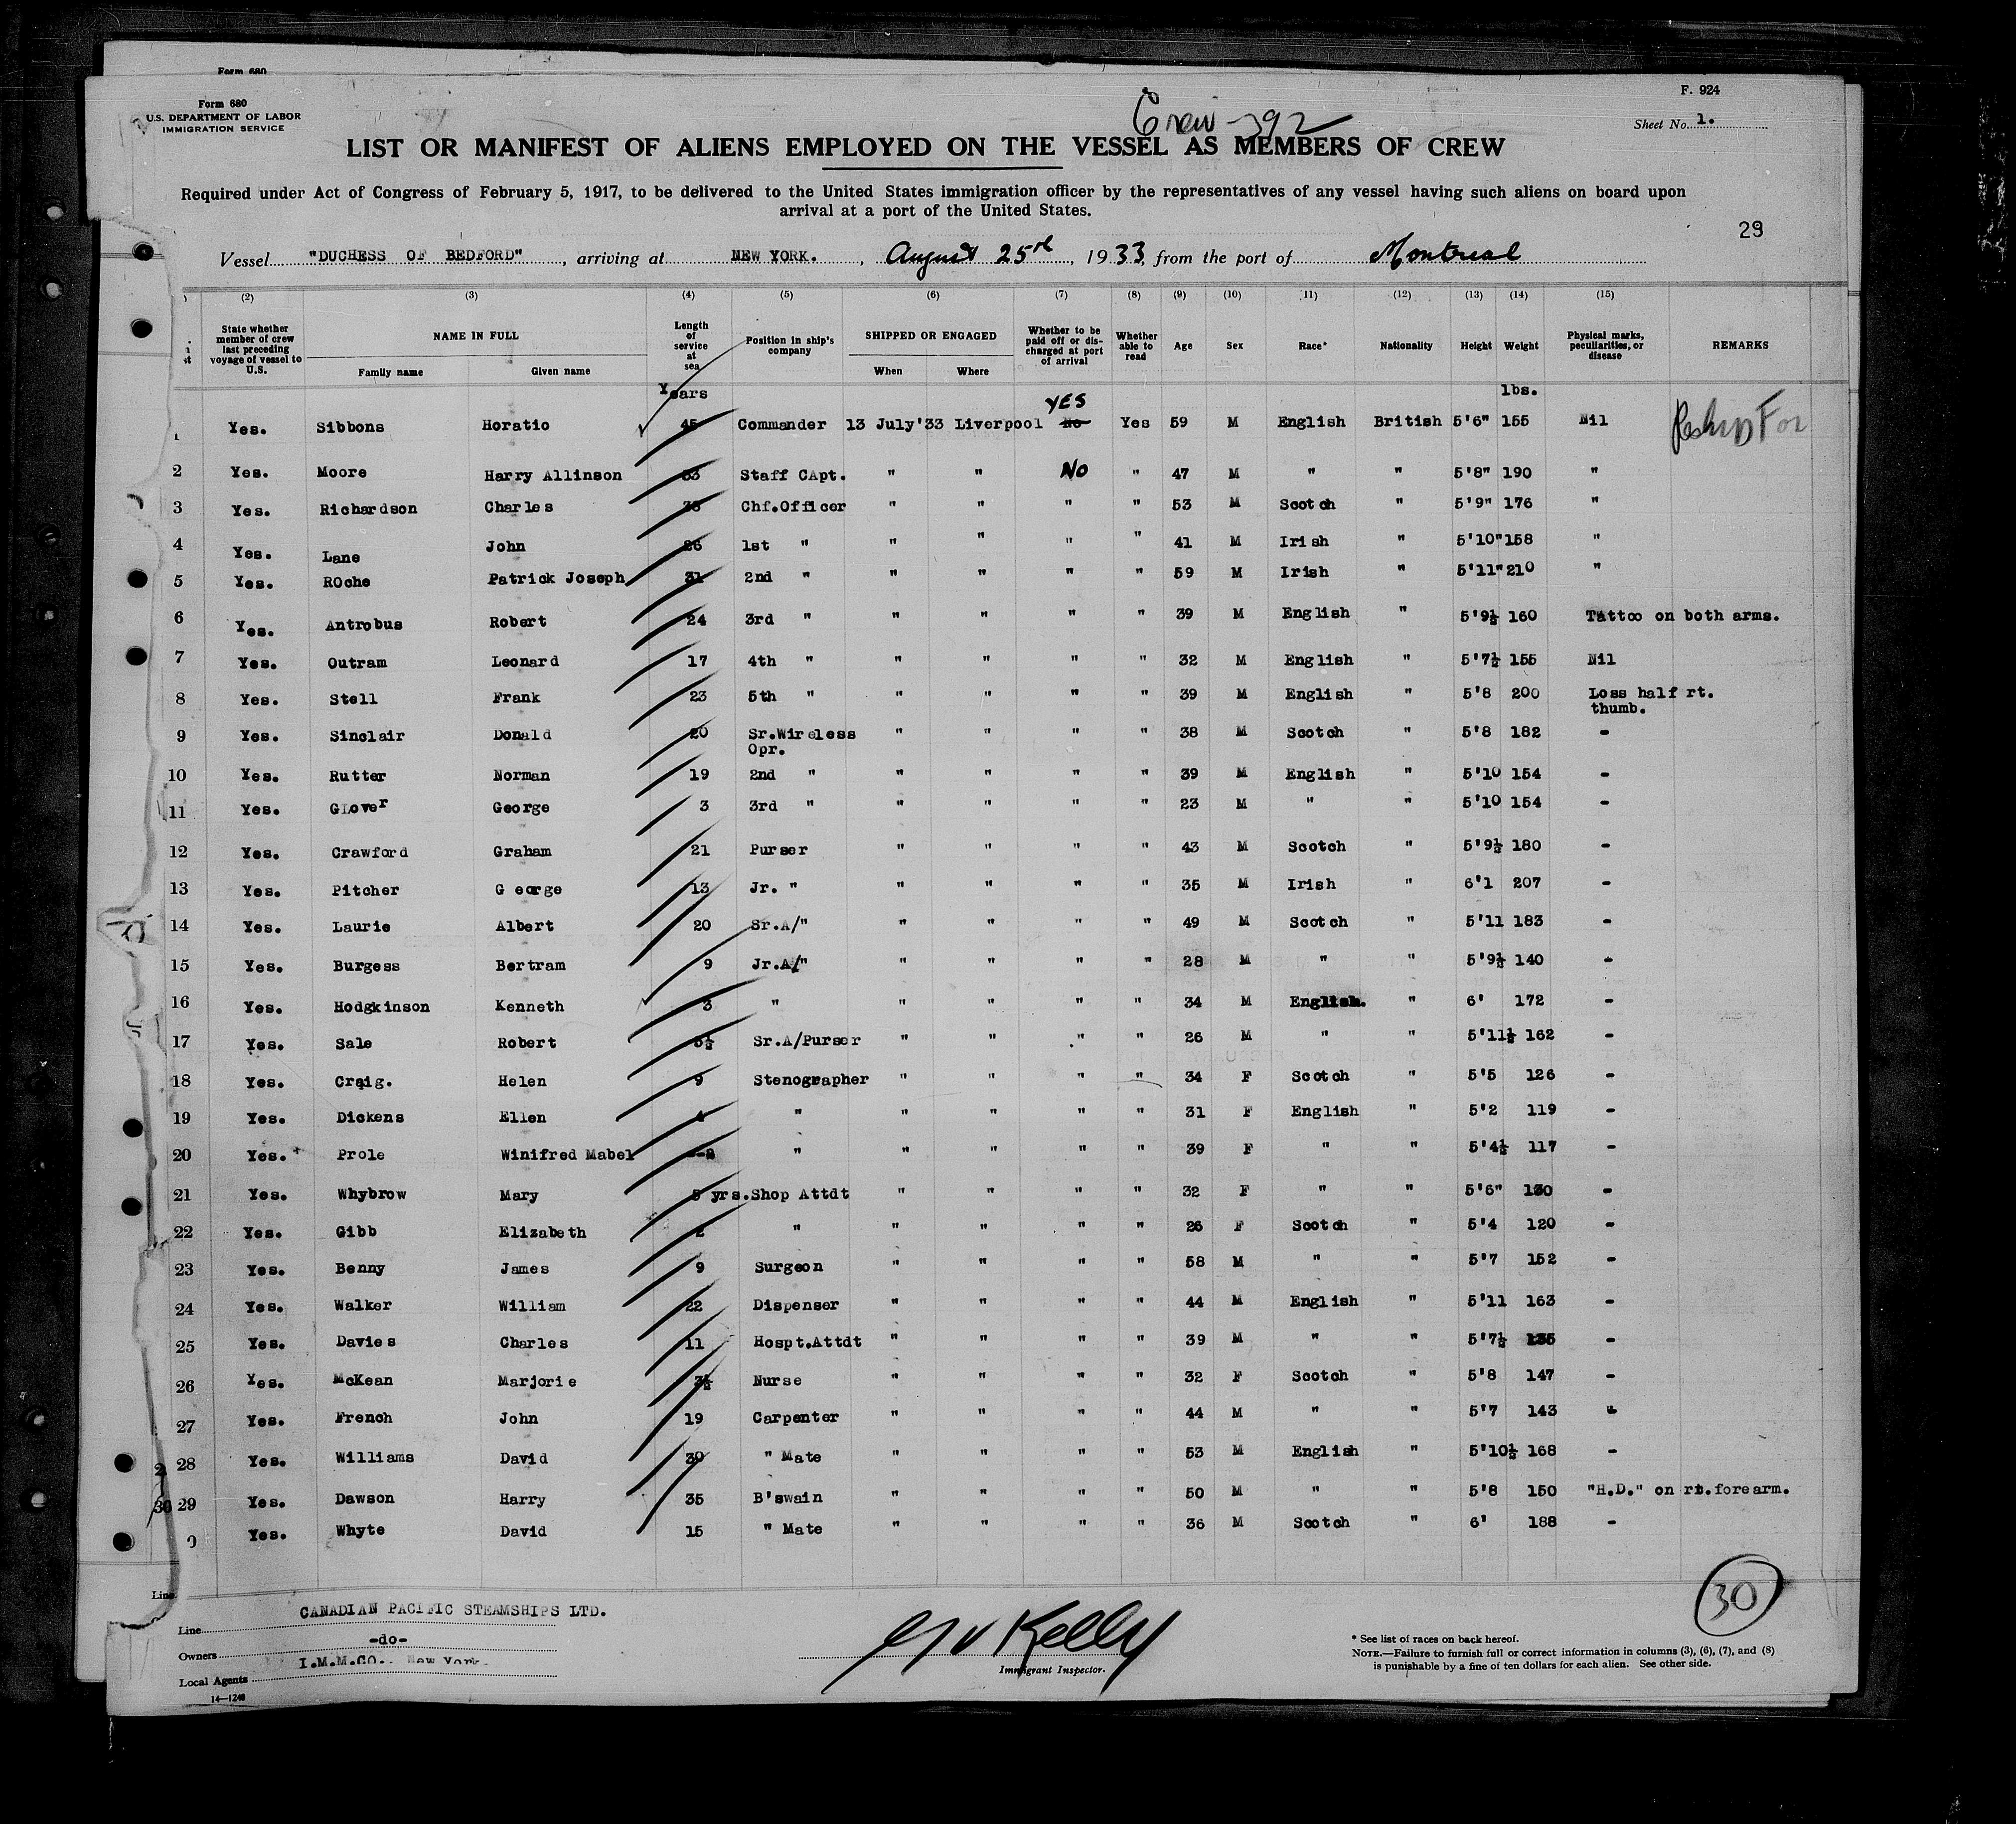 Form 680
Form 680
U.S. DEPARTMENT OF LABOR
IMMIGRATION SERVICE
F. 924
Sheet No. 1.
Crew - 392
LIST OR MANIFEST OF ALIENS EMPLOYED ON THE VESSEL AS MEMBERS OF CREW
Required under Act of Congress of February 5, 1917, to be delivered to the United States immigration officer by the representatives of any vessel having such aliens on board upon
arrival at a port of the United States.
29
Vessel "DUCHESS OF BEDFORD", arriving at NEW YORK., August 25th, 1933, from the port of Montreal
(2) (3) (4) (5) (6) (7) (8) (9) (10) (11) (12) (13) (14) (15)
State whether member of crew last preceding voyage of vessel to U.S. NAME IN FULL Family name Given name Length of service at sea Position in ship's company SHIPPED OR ENGAGED When Where Whether to be paid off or discharged at port of arrival Whether able to read Age Sex Race* Nationality Height Weight Physical marks, peculiarities, or disease REMARKS
Years lbs.
YES
1 Yes. Sibbons Horatio 45 Commander 13 July'33 Liverpool No Yes 59 M English British 5'6" 155 Nil
2 Yes. Moore Harry Allinson 33 Staff CApt. " " NO " 47 M " " 5'8" 190 "
3 Yes. Richardson Charles Chf.Officer " " " " 53 M Scotch " 5'9" 176 "
4 Yes. Lane John 26 1st " " " " " 41 M Irish " 5'10" 158 "
5 Yes. ROche Patrick Joseph 31 2nd " " " " " 59 M Irish " 5'11" 210 "
6 Yes. Antrobus Robert 24 3rd " " " " " 39 M English " 5'9½ 160 Tattoo on both arms.
7 Yes. Outram Leonard 17 4th " " " " " 32 M English " 5'7½ 155 Nil
8 Yes. Stell Frank 23 5th " " " " " 39 M English " 5'8 200 Loss half rt.
thumb.
9 Yes. Sinclair Donald 20 Sr.Wireless " " " " 38 M Scotch " 5'8 182 -
Opr.
10 Yes. Rutter Norman 19 2nd " " " " " 39 M English " 5'10 154 -
11 Yes. GLover George 3 3rd " " " " " 23 M " " 5'10 154 -
12 Yes. Crawford Graham 21 Purser " " " " 43 M Scotch " 5'9½ 180 -
13 Yes. Pitcher G eorge 13 Jr. " " " " " 35 M Irish " 6'1 207 -
14 Yes. Laurie Albert 20 Sr.A/" " " " " 49 M Scotch " 5'11 183 -
15 Yes. Burgess Bertram 9 Jr.A/" " " " " 28 M " " 5'9½ 140 -
16 Yes. Hodgkinson Kenneth 3 " " " " " 34 M English. " 6' 172 -
17 Yes. Sale Robert 5½ Sr.A/Purser " " " " 26 M " " 5'11½ 162 -
18 Yes. Craig. Helen 9 Stenographer " " " " 34 F Scotch " 5'5 126 -
19 Yes. Dickens Ellen 4 " " " " " 31 F English " 5'2 119 -
20 Yes. Prole Winifred Mabel " " " " " 39 F " " 5'4½ 117 -
21 Yes. Whybrow Mary 5 yrs. Shop Attdt " " " " 32 F " " 5'6" 130 -
22 Yes. Gibb Elizabeth 2 " " " " " 26 F Scotch " 5'4 120 -
23 Yes. Benny James 9 Surgeon " " " " 58 M " " 5'7 152 -
24 Yes. Walker William 22 Dispenser " " " " 44 M English " 5'11 163 -
25 Yes. Davies Charles 11 Hospt.Attdt " " " " 39 M " " 5'7½ 135 -
26 Yes. McKean Marjorie 3½ Nurse " " " " 32 F Scotch " 5'8 147 -
27 Yes. French John 19 Carpenter " " " " 44 M " " 5'7 143 -
28 Yes. Williams David 30 " Mate " " " " 53 M English " 5'10½ 168 -
29 Yes. Dawson Harry 35 B'swain " " " " 50 M " " 5'8 150 "H.D." on rt.forearm.
Yes. Whyte David 15 " Mate " " " " 36 M Scotch " 6' 188 -
30
Line CANADIAN PACIFIC STEAMSHIPS LTD.
Owners -do-
Local Agents I.M.M.CO. New York.
14—1240
Kelly
Immigrant Inspector.
* See list of races on back hereof.
NOTE.—Failure to furnish full or correct information in columns (3), (6), (7), and (8)
is punishable by a fine of ten dollars for each alien. See other side.